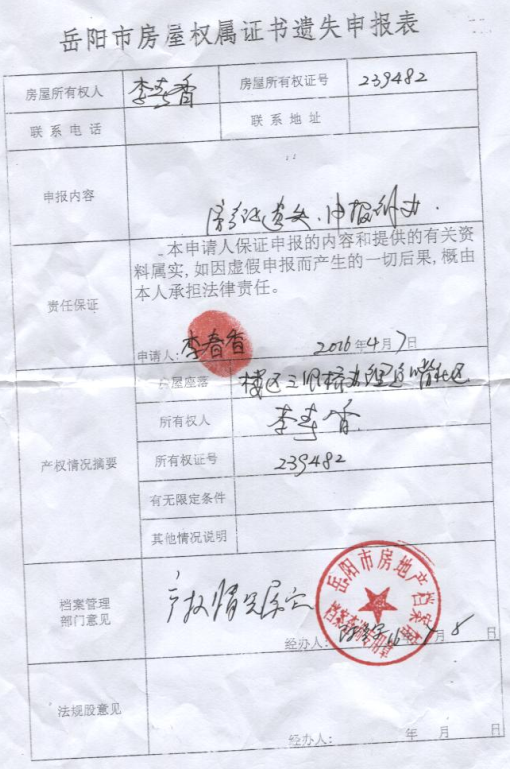 岳阳市房屋权属证书遗失申报表
房屋所有权人 李春香 房屋所有权证号 239482
联系电话 联系地址
申报内容 房产证遗失、申报补办.
责任保证 本申请人保证申报的内容和提供的有关资
料属实,如因虚假申报而产生的一切后果,概由
本人承担法律责任。
申请人: 李春香 2016年4月7日
产权情况摘要 房屋座落 楼区三眼桥办理
所有权人 李春香
所有权证号 239482
有无限定条件
其他情况说明
档案管理
部门意见 产权情况属实
岳阳市房地产档案
经办人: 16 8日
法规股意见
经办人: 年 月 日